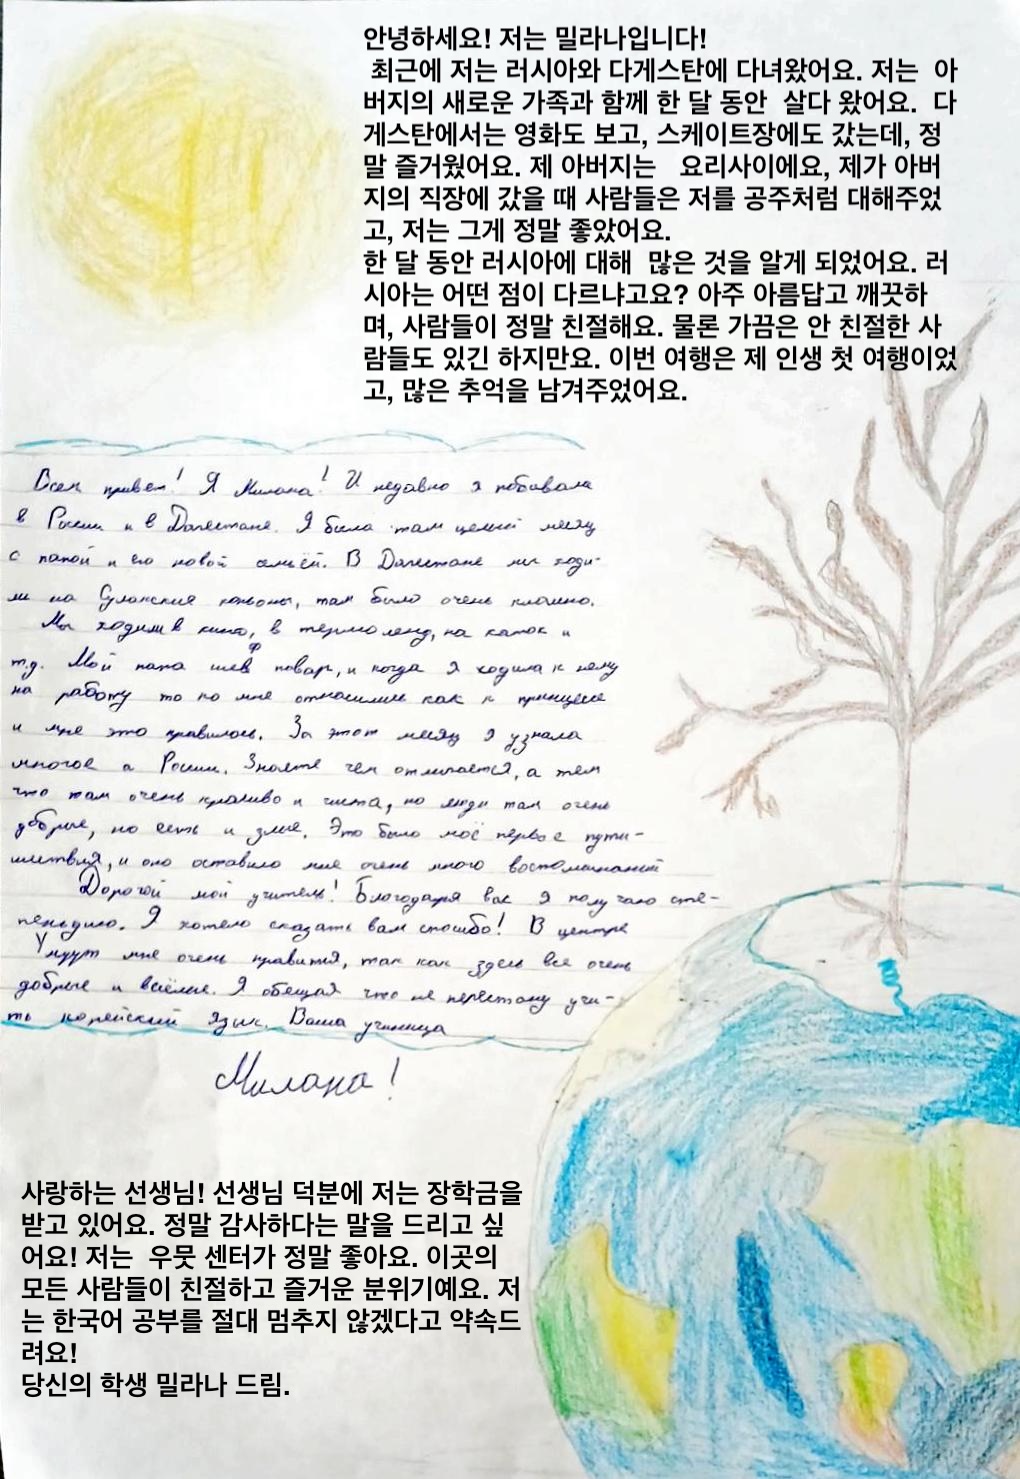 안녕하세요! 저는 밀라나입니다!
최근에 저는 러시아와 다게스탄에 다녀왔어요. 저는 아
버지의 새로운 가족과 함께 한 달 동안 살다 왔어요. 다
게스탄에서는 영화도 보고, 스케이트장에도 갔는데, 정
말 즐거웠어요. 제 아버지는 요리사이에요, 제가 아버
지의 직장에 갔을 때 사람들은 저를 공주처럼 대해주었
고, 저는 그게 정말 좋았어요.
한 달 동안 러시아에 대해 많은 것을 알게 되었어요. 러
시아는 어떤 점이 다르냐고요? 아주 아름답고 깨끗하
며, 사람들이 정말 친절해요. 물론 가끔은 안 친절한 사
람들도 있긴 하지만요. 이번 여행은 제 인생 첫 여행이었
고, 많은 추억을 남겨주었어요.
Всем привет! Я Милана! И недавно я побывала
в России и в Дагестане. Я была там целый месяц
с папой и его новой семьёй. В Дагестане мы ходи-
ли на Сулакские каньоны, там было очень классно.
Мы ходили в кино, в термоленд, на каток и
т.д. Мой папа шеф повар, и когда я ходила к нему
на работу то ко мне относились как к принцессе
и мне это нравилось. За этот месяц я узнала
многое о России. Знаете чем отличается, а тем
что там очень красиво и чиста, но люди там очень
добрые, но есть и злые. Это было моё первое пути-
шествия, и оно оставило мне очень много воспоминаний
Дорогой мой учитель! Благодаря вас я получаю сте-
пендию. Я хотела сказать вам спасибо! В центре
Умут мне очень нравится, так как здесь все очень
добрые и весёлые. Я обещая что не перестану учи-
ть корейский язык. Ваша ученица
Милана!
사랑하는 선생님! 선생님 덕분에 저는 장학금을
받고 있어요. 정말 감사하다는 말을 드리고 싶
어요! 저는 우뭇 센터가 정말 좋아요. 이곳의
모든 사람들이 친절하고 즐거운 분위기예요. 저
는 한국어 공부를 절대 멈추지 않겠다고 약속드
려요!
당신의 학생 밀라나 드림.